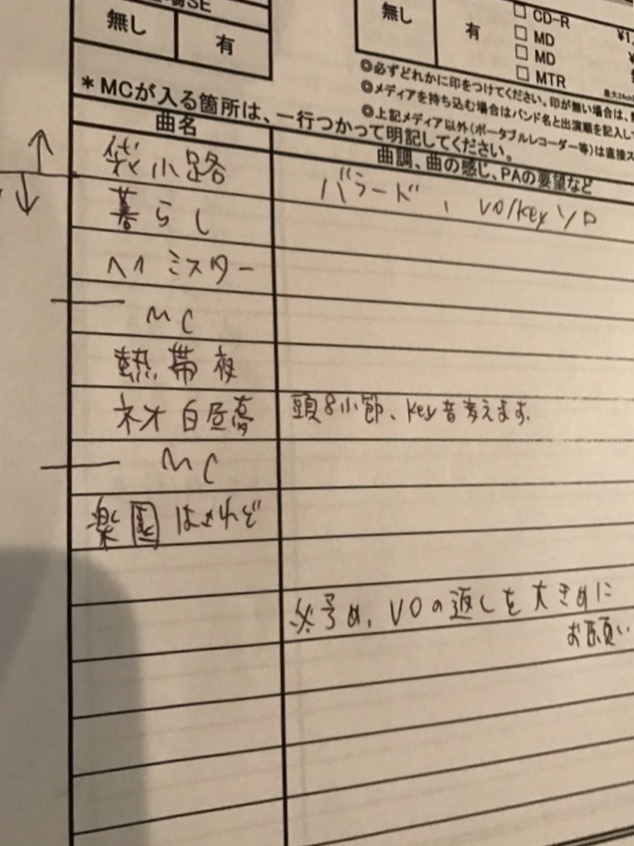 場SE
無し
有
無し
有
□ CD-R
□ MD
□ MD
□ MTR
◎必ずどれかに印をつけてください。印が無い場合は、
◎メディアを持ち込む場合はバンド名と出演順を記入し
◎上記メディア以外(ポータブルレコーダー等)は直接
*MCが入る箇所は、一行つかって明記してください。
曲名
曲調、曲の感じ、PAの要望など
↑
袋小路
バラード、VO/Keyソロ
↓
暮らし
ヘイミスター
MC
熱帯夜
ネオ白昼夢
頭8小節、Key音考えます.
MC
楽園はされど
VOの返しを大きめに
お願い